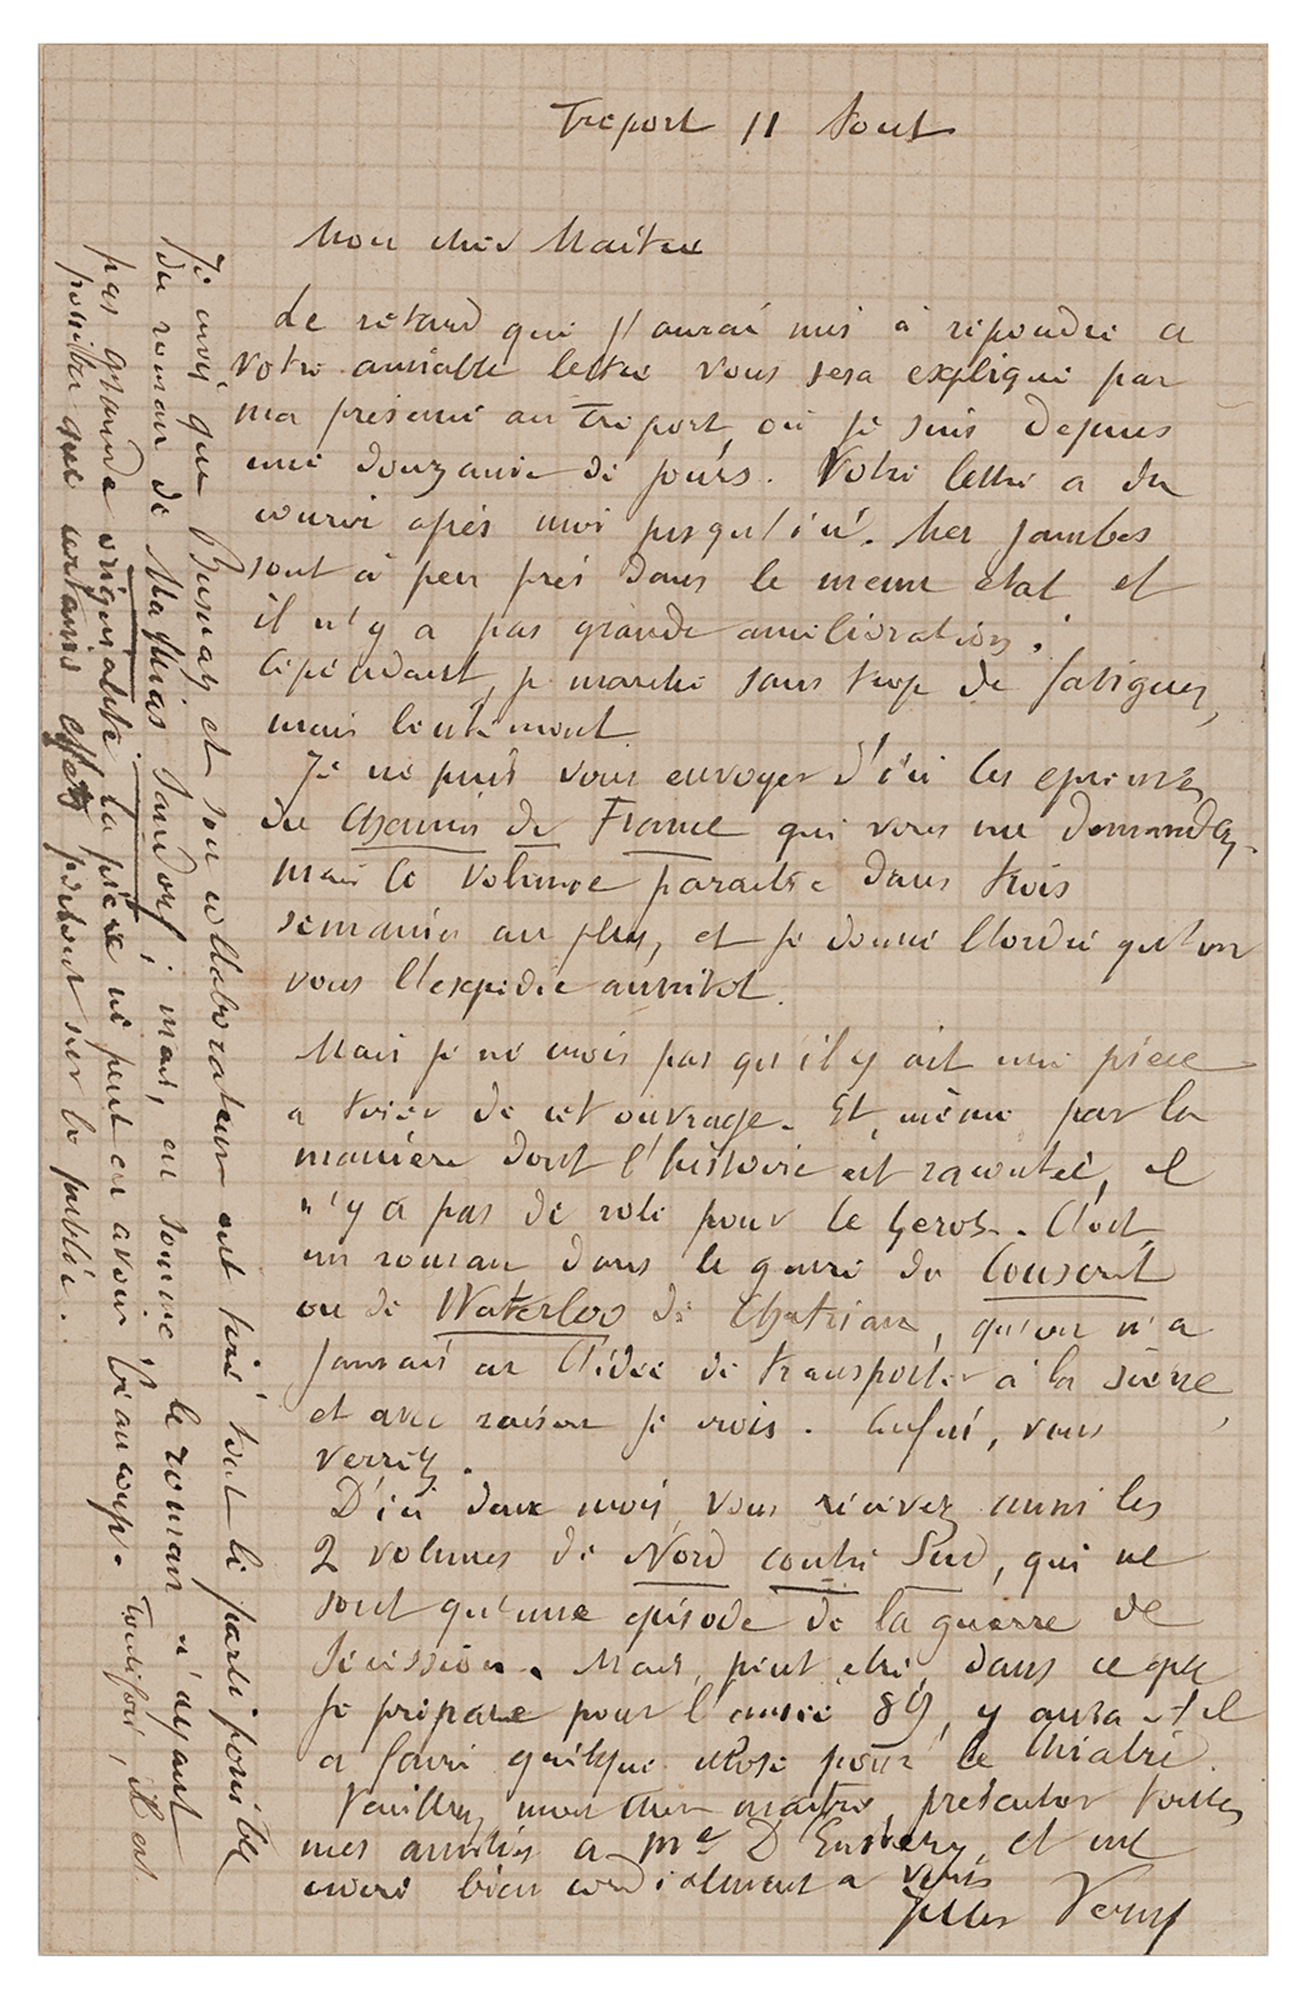 Treport 11 Aout
Mon cher Maitre
Le retard que j'aurai mis à répondre a
votre aimable lettre vous sera expliqué par
ma présence au Tréport, où je suis depuis
une douzaine de jours. Votre lettre a du
courir après moi jusqu'ici. Mes jambes
sont à peu près dans le meme etat et
il n'y a pas grande amélioration ;
Cependant, je marche sans trop de fatigues,
mais lentement
Je ne puis vous envoyer d'ici les epreuves
du Chemin de France que vous me demandez,
mais le volume paraitra dans trois
semaines au plus, et je donne l'ordre qu'on
vous l'expedie aussitot.
Mais je ne crois pas qu'il y ait une pièce
a tirer de cet ouvrage. Et, même par la
manière dont l'histoire est racontée, il
n'y a pas de role pour le heros. C'est
un roman dans le genre du Conscrit
ou de Waterloo de Chatrian, qu'on n'a
jamais eu l'idée de transporter à la scène,
et avec raison je crois. Enfin, vous
verrez.
D'ici deux mois, vous recevrez aussi les
2 volumes de Nord contre Sud, qui ne
sont qu'une episode de la guerre de
Sécession. Mais, peut etre, dans ce que
je prépare pour l'année 89, y aura-t-il
a faire quelque chose pour le théatre.
Veuillez, mon cher maitre, presenter toutes
mes amitiés a Me D'Ennery, et me
croire bien cordialement a vous
Jules Verne
Je crois que Busnach et son collaborateur ont tiré tout le parti possible
du roman de Mathias Sandorf ; mais, en somme le roman n'ayant
pas grande originalité la pièce ne peut en avoir beaucoup. Toutefois, il est
possible que certains effets portent sur le public.